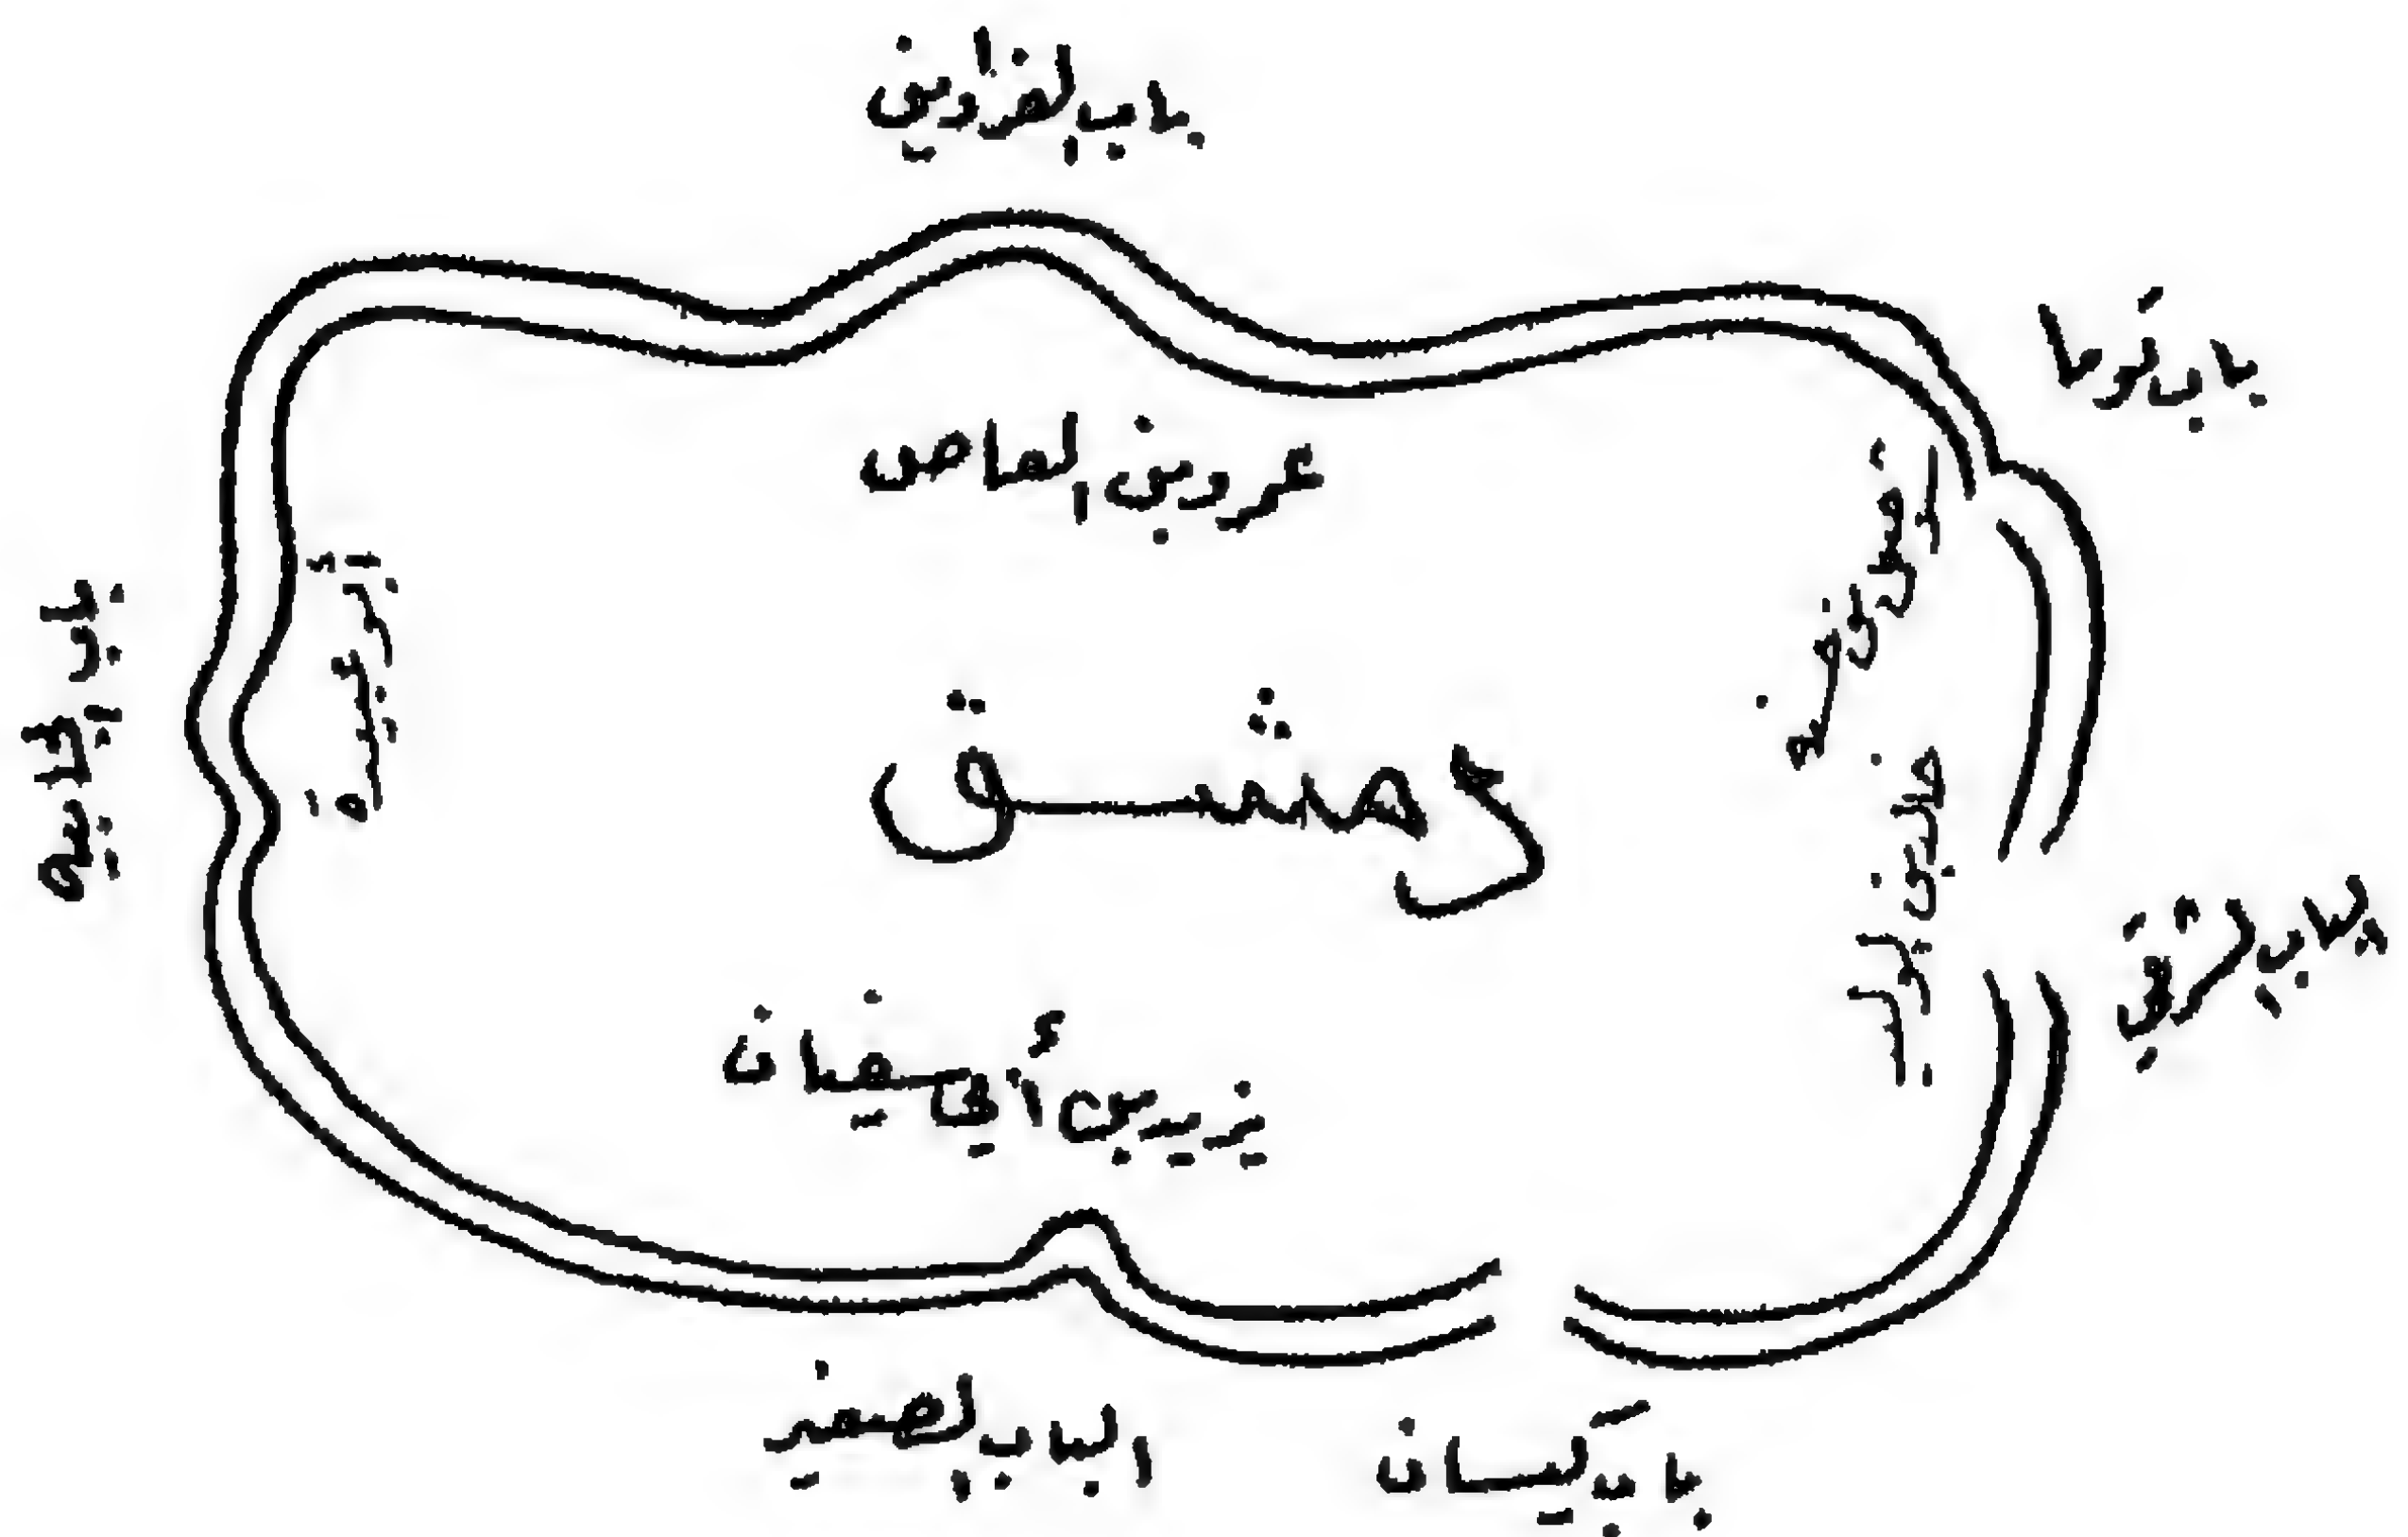 باب الفراديس
باب توما
عمرو بن العاص
أبو عبيدة
باب الجابية
دمشق
خالد بن
الباب الشرقي
يزيد بن أبي سفيان
الباب الصغير
باب كيسان